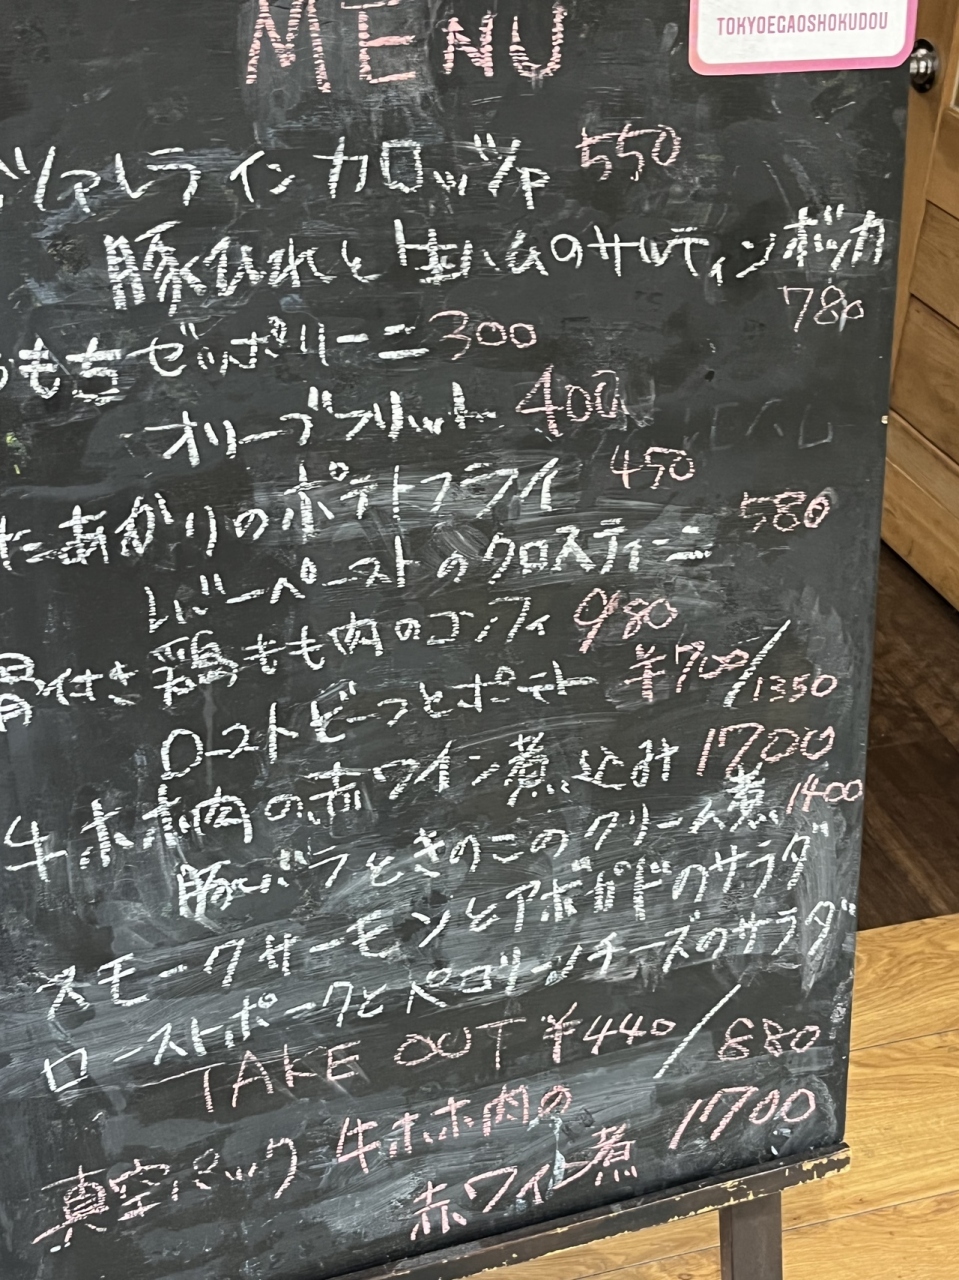 TOKYOEGAOSHOKUDOU
MENU
ツァレライン カロッツァ 550
豚ひれと生ハムのサルティンボッカ
780
もちゼッポリーニ 300
オリーブフリット 400
たあかりのポテトフライ 450
レバーペーストのクロスティーニ 580
骨付き鶏もも肉のコンフィ 980
ローストビーフとポテト ¥700/1350
牛ホホ肉の赤ワイン煮込み 1700
豚バラときのこのクリーム煮 1400
スモークサーモンとアボガドのサラダ
ローストポークとペコリーノチーズのサラダ
TAKE OUT ¥440/880
真空パック 牛ホホ肉の
赤ワイン煮 1700